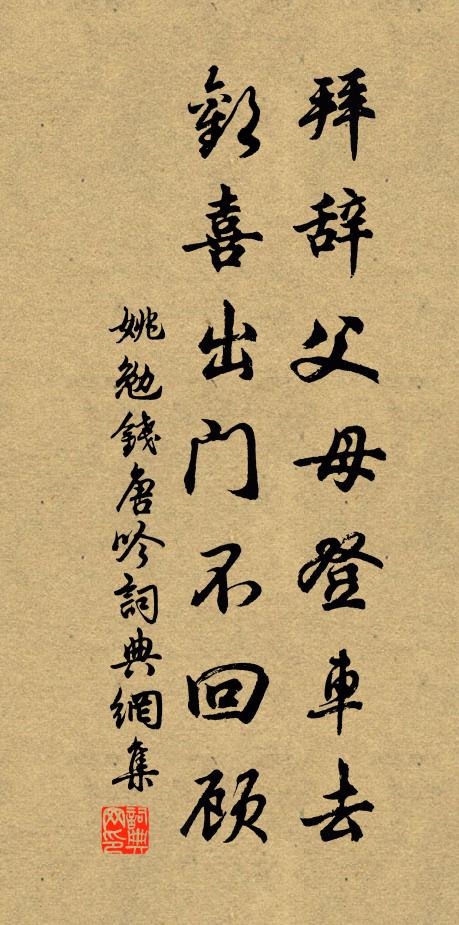 拜辞父母登車去
歡喜出門不回顾
姚勉錢唐吟詞典網集
詞典網印